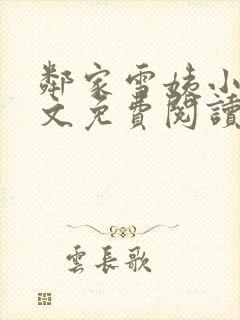 鄰家雪姨小
文免費閱讀
雲長歌